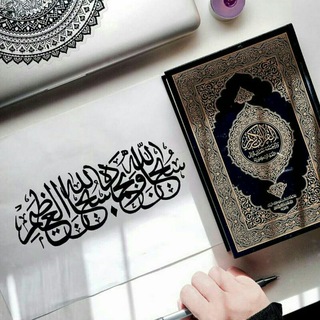 سبحان الله وبحمده سبحان الله العظيم
القرآن الكريم